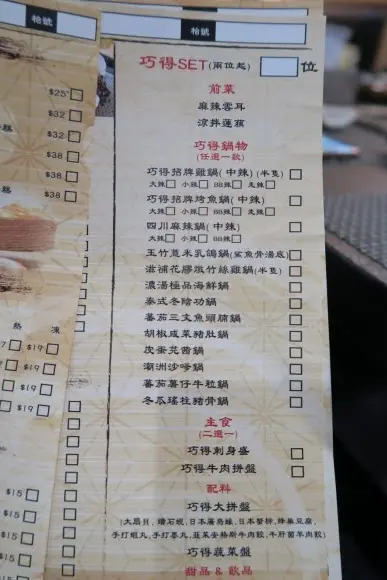 枱號
枱號
巧得SET(兩位起) 位
前菜
麻辣雲耳
涼拌蓮藕
巧得鍋物
(任選一款)
巧得招牌雞鍋(中辣)(半隻)
大辣 小辣 BB辣 走辣
巧得招牌烤魚鍋(中辣)
大辣 小辣 BB辣 走辣
四川麻辣鍋(中辣)
大辣 小辣 BB辣 走辣
玉竹薏米乳鴿鍋(鯊魚骨湯底)
滋補花膠燉竹絲雞鍋(半隻)
濃湯極品海鮮鍋
泰式冬陰功鍋
番茄三文魚頭腩鍋
胡椒咸菜豬肚鍋
皮蛋芫茜鍋
潮洲沙嗲鍋
番茄薯仔牛粒鍋
冬瓜瑤柱豬骨鍋
主食
(二選一)
巧得刺身盛
巧得牛肉拼盤
配料
巧得大拼盤
(大扇貝, 鑽石蜆, 日本廣島蠔, 日本蟹柳, 蜂巢豆腐,
手打蝦丸, 手打墨丸, 韮菜安格斯牛肉餃, 牛肝菌羊肉餃)
巧得蔬菜盤
甜品 & 飲品
$25
$32
$32
$38
$38
$38
熱 凍
$19
$19
$19
$19
$15
$15
$15
$15